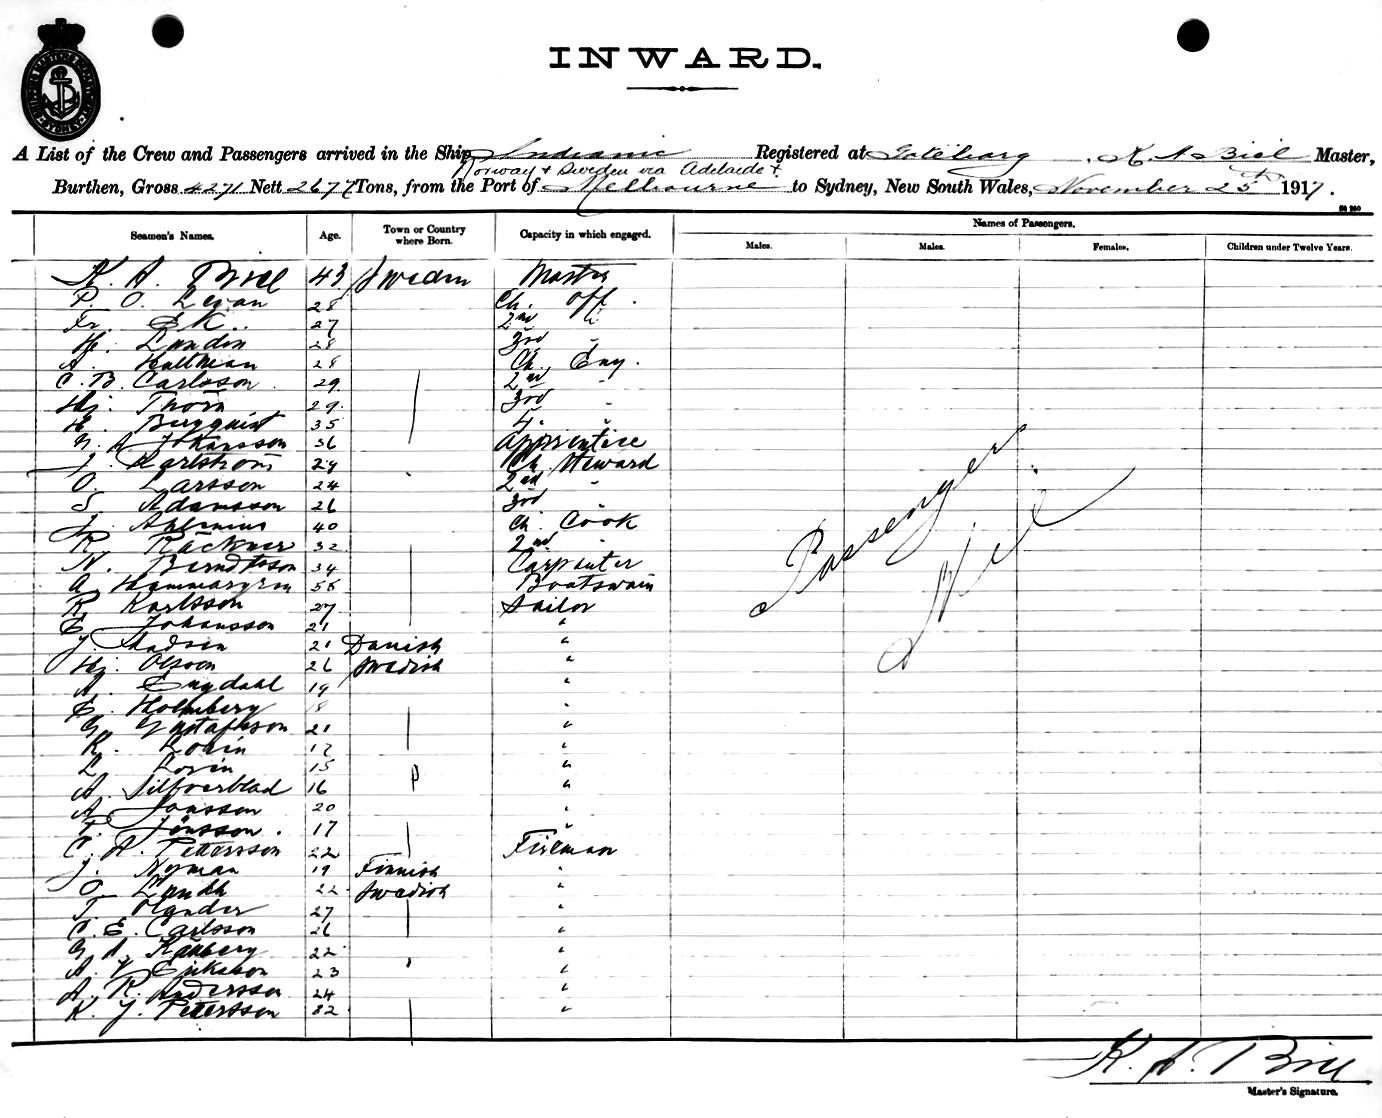 SHIPPING MASTERS DEPARTMENT SYDNEY
INWARD.
A List of the Crew and Passengers arrived in the Ship Indianic Registered at Goteborg, K A Bice Master,
Norway & Sweden via Adelaide &
Burthen, Gross 4271 Nett 2677 Tons, from the Port of Melbourne to Sydney, New South Wales, November 25th 1917.
Seamen's Names. Age. Town or Country where Born. Capacity in which engaged. Names of Passengers.
Males. Males. Females. Children under Twelve Years.
K. A. Bice 43 Sweden Master
P. O. Levan 28 Ch. Off.
Fr. Ek. 27 2nd "
H. Lundin 28 3rd "
A. Hultman 28 Ch. Eng.
C. B. Carlsson 29 2nd "
Hj. Thorn 29 3rd "
H. Bergquist 35 4. "
G. A. Johansson 36 Apprentice
J. Karlstrom 29 Ch. Steward
O. Larsson 24 2nd "
S. Adamsson 26 3rd "
J. Ahlenius 40 Ch. Cook
R. Räckner 32 2nd "
N. Berndtsson 34 Carpenter
A. Hammargren 55 Boatswain
R. Karlsson 27 Sailor
E. Johansson 21 "
J. Madsen 21 Danish "
Hj. Olsson 26 Swedish "
A. Engdahl 19 "
E. Holmberg 18 "
G. Gustafsson 21 "
K. Lorin 17 "
L. Lorin 15 "
A. Silfverblad 16 "
A. Jonsson 20 "
F. Jönsson. 17 "
C. A. Pettersson 22 Fireman
J. Nyman 19 Finnish "
O. Lundh 22 Swedish "
T. Olander 27 "
C. E. Carlsson 26 "
G. A. Ranberg 22 "
A. J. Eriksson 23 "
A. R. Andersson 24 "
K. J. Pettersson 32 "
Passengers
Nil
K. A. Bice
Master's Signature.